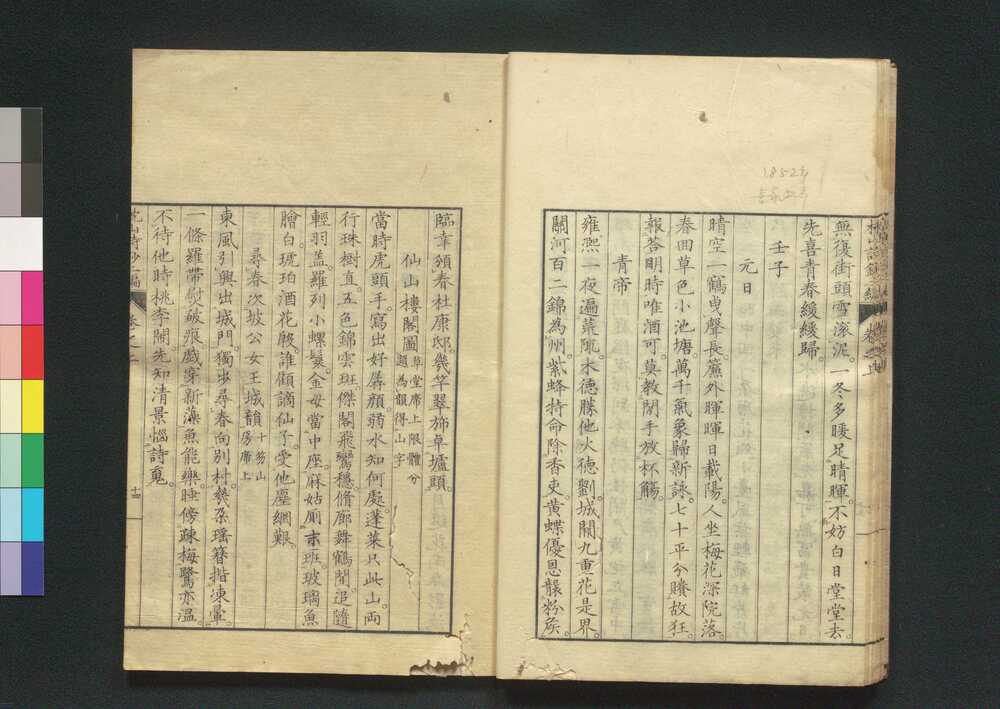 無復街頭雪滾泥。一冬多暖足晴暉。不妨白日堂堂去。
先喜青春緩緩歸。
壬子
元日
晴空一鶴曳聲長。簾外暉暉日載陽。人坐梅花深院落。
春回草色小池塘。萬千氣象歸新詠。七十平分賸故狂。
報答明時唯酒可。莫教閑手放杯觴。
青帝
雍熙一夜遍菰陬。木德勝他火德劉。城闕九重花是界。
關河百二錦為州。紫蜂持命除香吏。黃蝶優恩襲粉矦。
臨幸頻春杜康邸。幾竿翠斾卓壚頭。
仙山樓閣圖 草堂席上限體分題為韻得山字
當時虎頭手。寫出好孱顏。弱水知何處。蓬萊只此山。兩
行珠樹直。五色錦雲班。傑閣飛鸞穩。脩廊舞鶴閒。追隨
輕羽蓋。羅列小螺鬟。金母當中座。麻姑厠末班。玻璃魚
膾白。琥珀酒花殷。誰顧謫仙子。受他塵網艱。
尋春次坡公女王城韻 十笏山房席上
東風引興出城門。獨步尋春向別村。幾朶瑤簪揩凍暈。
一條羅帶熨皺痕。戲穿新藻魚能樂。睡傍疎梅鷺亦溫。
不待他時桃李鬧。先知清景惱詩䰟。
卷之二
十四